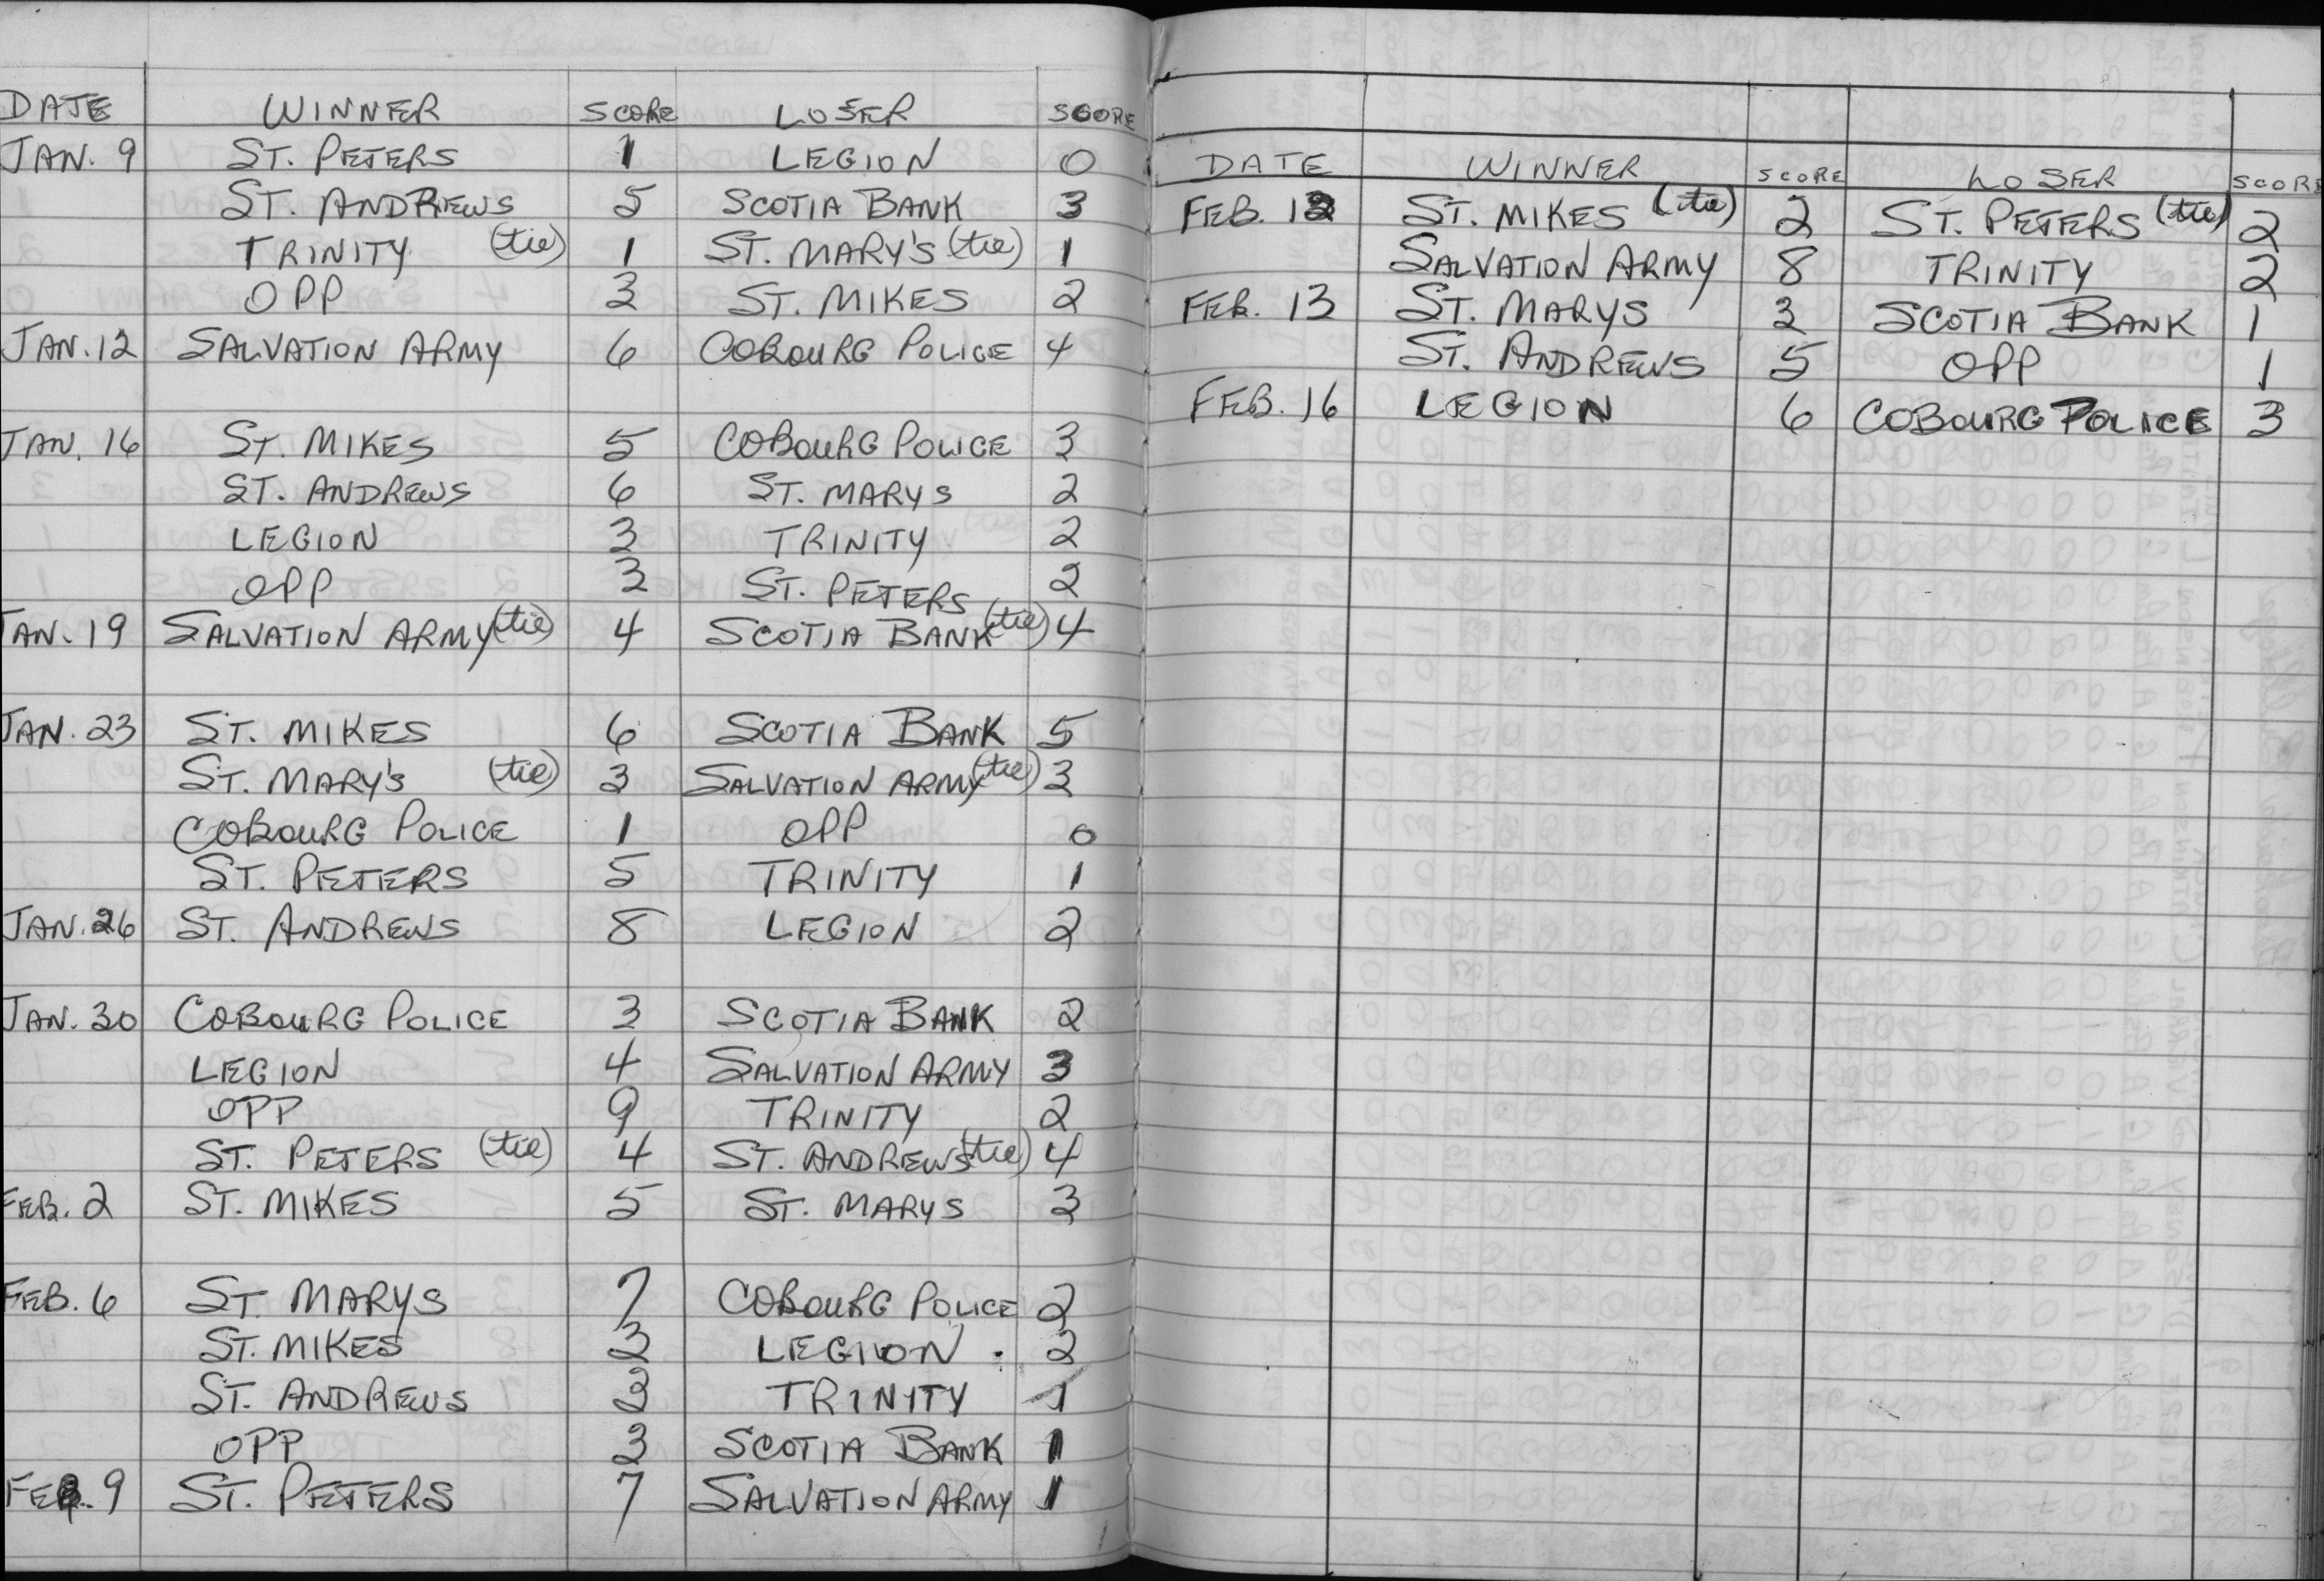 DATE WINNER SCORE LOSER SCORE
JAN. 9 ST. PETERS 1 LEGION 0
ST. ANDREWS 5 SCOTIA BANK 3
TRINITY (tie) 1 ST. MARY'S (tie) 1
OPP 3 ST. MIKES 2
JAN. 12 SALVATION ARMY 6 COBOURG POLICE 4
JAN. 16 ST. MIKES 5 COBOURG POLICE 3
ST. ANDREWS 6 ST. MARYS 2
LEGION 3 TRINITY 2
OPP 3 ST. PETERS 2
JAN. 19 SALVATION ARMY (tie) 4 SCOTIA BANK (tie) 4
JAN. 23 ST. MIKES 6 SCOTIA BANK 5
ST. MARY'S (tie) 3 SALVATION ARMY (tie) 3
COBOURG POLICE 1 OPP 0
ST. PETERS 5 TRINITY 1
JAN. 26 ST. ANDREWS 8 LEGION 2
JAN. 30 COBOURG POLICE 3 SCOTIA BANK 2
LEGION 4 SALVATION ARMY 3
OPP 9 TRINITY 2
ST. PETERS (tie) 4 ST. ANDREWS (tie) 4
FEB. 2 ST. MIKES 5 ST. MARYS 3
FEB. 6 ST. MARYS 7 COBOURG POLICE 2
ST. MIKES 3 LEGION 2
ST. ANDREWS 3 TRINITY 1
OPP 3 SCOTIA BANK 1
FEB. 9 ST. PETERS 7 SALVATION ARMY 1
DATE WINNER SCORE LOSER SCORE
FEB. 12 ST. MIKES (tie) 2 ST. PETERS (tie) 2
SALVATION ARMY 8 TRINITY 2
FEB. 13 ST. MARYS 3 SCOTIA BANK 1
ST. ANDREWS 5 OPP 1
FEB. 16 LEGION 6 COBOURG POLICE 3